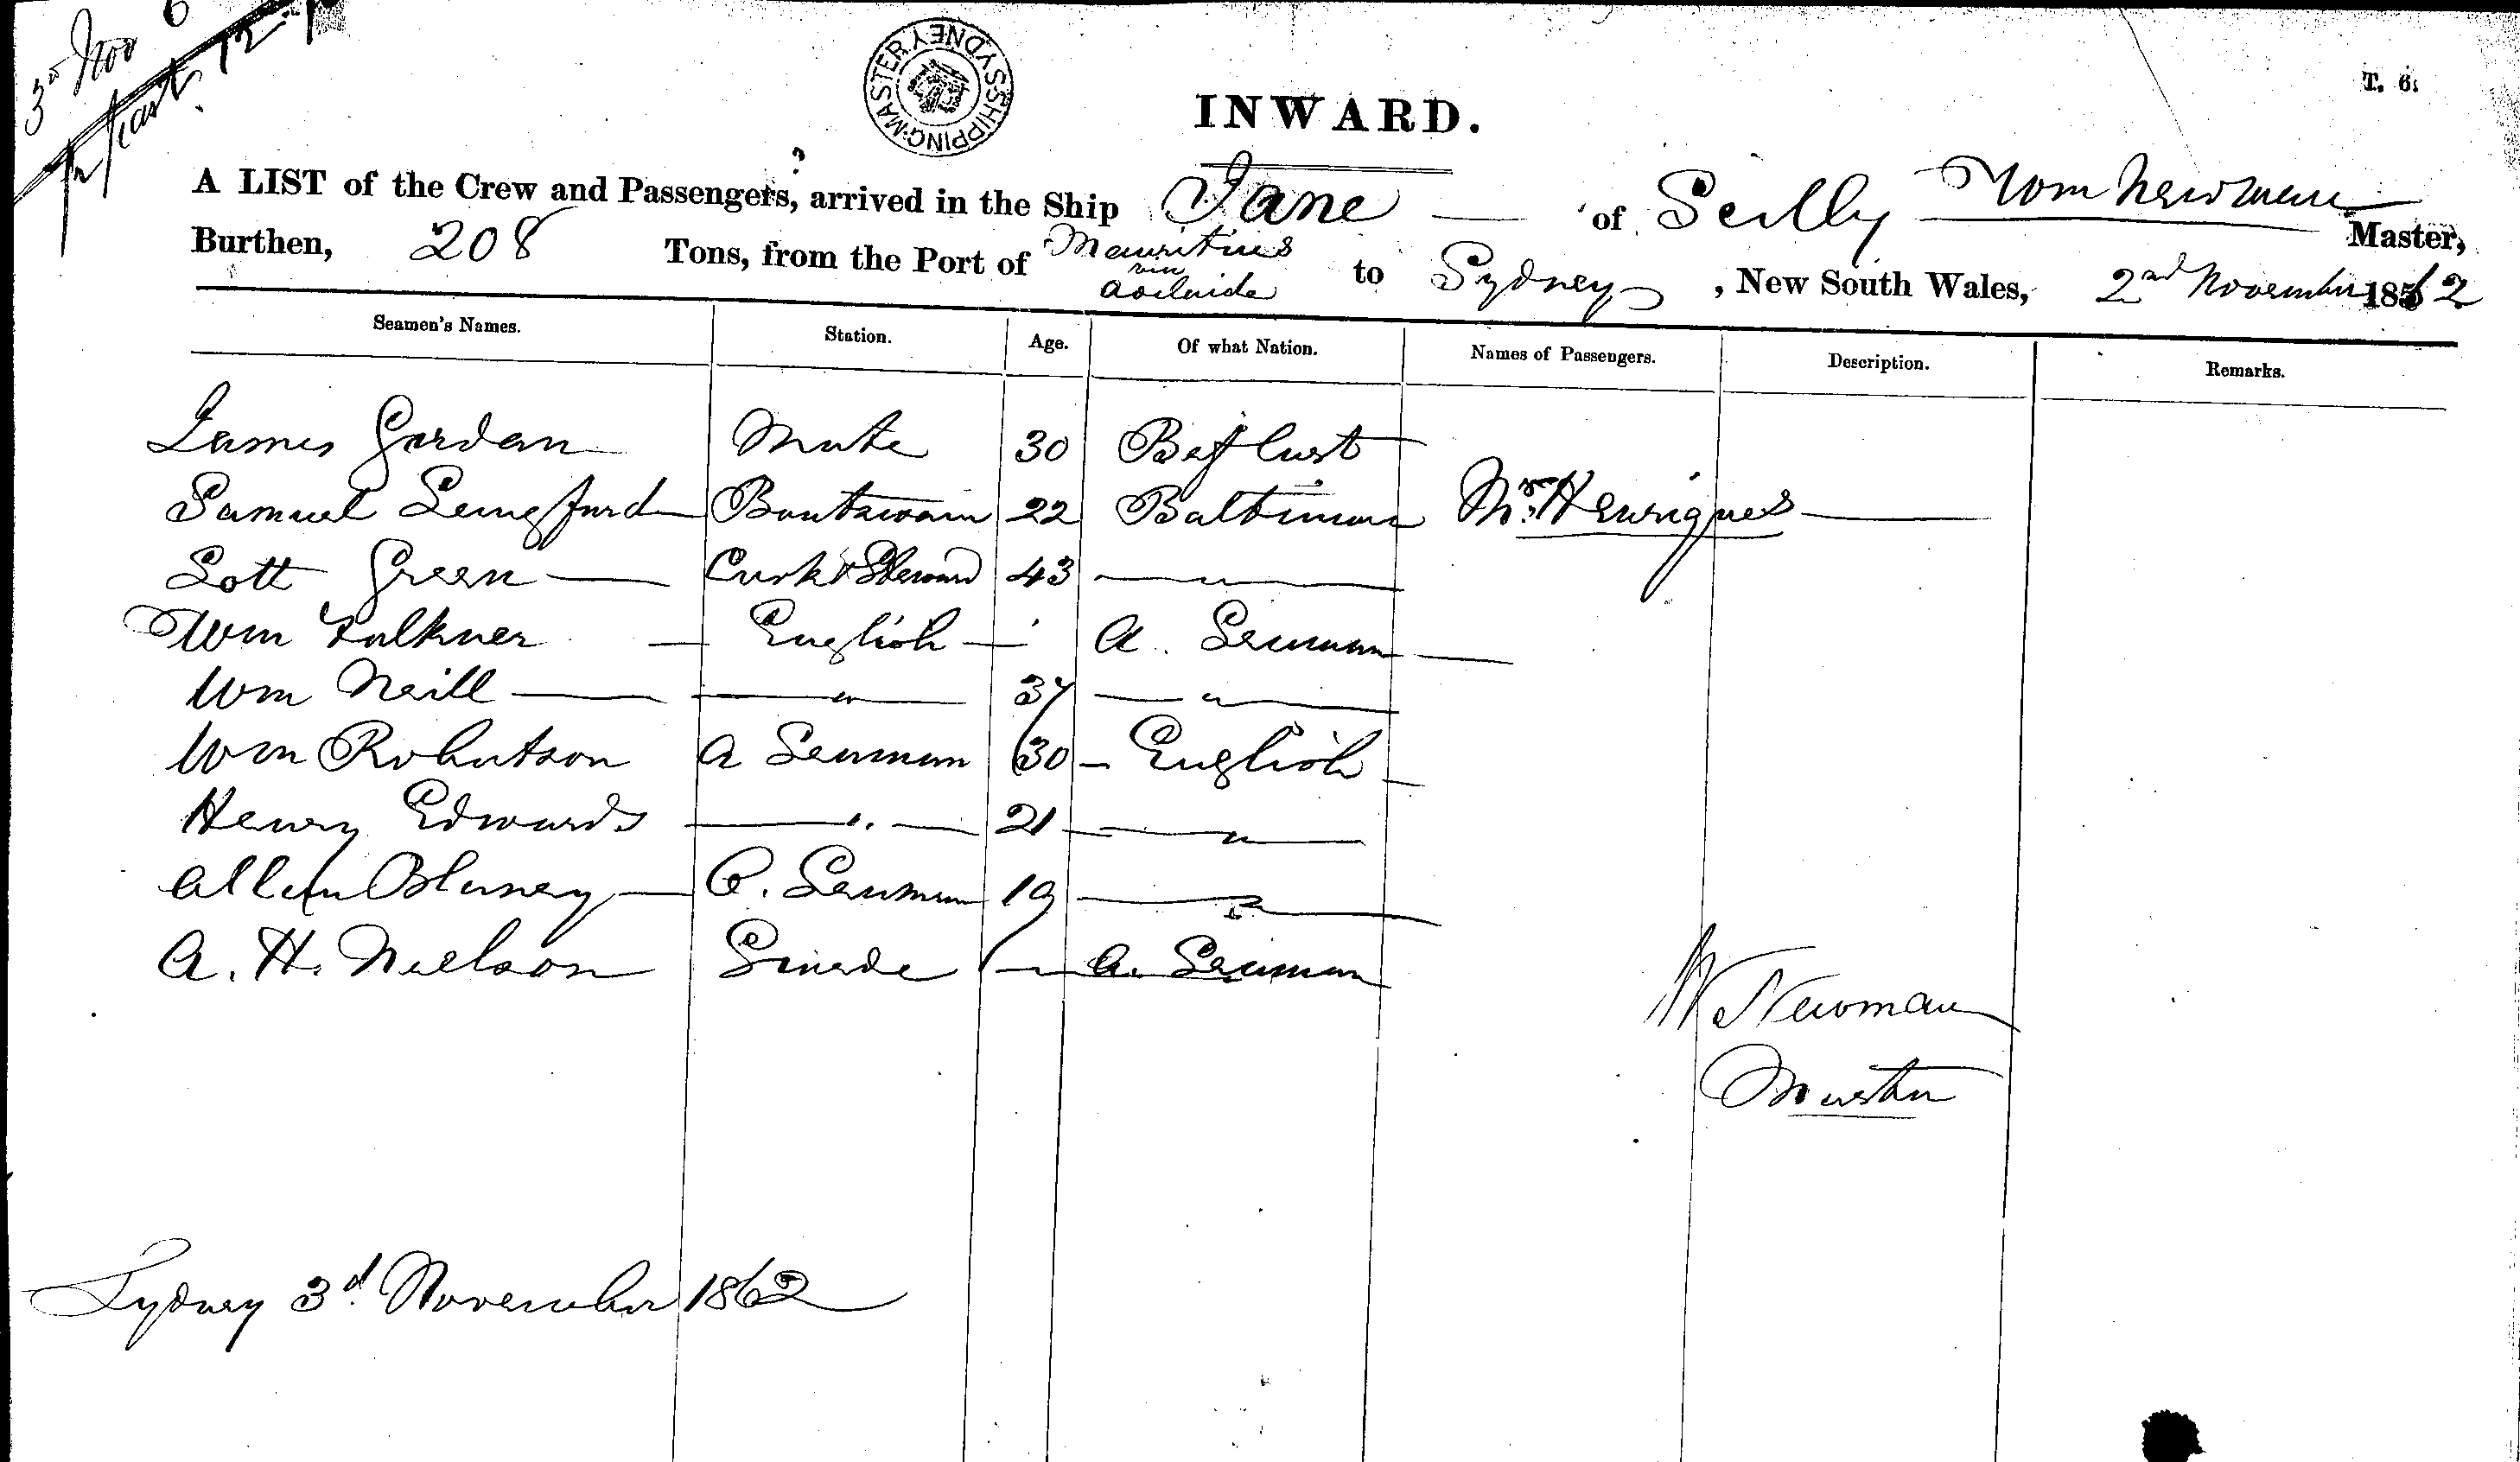 3rd Nov 6
past 12
SHIPPING MASTER SYDNEY
T. 6.
INWARD.
A LIST of the Crew and Passengers, arrived in the Ship Jane of Scilly Wm Newman Master,
Burthen, 208 Tons, from the Port of Mauritius via Adelaide to Sydney, New South Wales, 2nd November 1862
Seamen's Names. Station. Age. Of what Nation. Names of Passengers. Description. Remarks.
James Gordan Mate 30 Belfast
Samuel Boatswain 22 Baltimore Mr. Henriques
Lott Green Cook & Steward 43 "
Wm Falkner English A. Seaman
Wm Neill " 37 "
Wm Robertson A Seaman 30 English
Henry Edwards " 21 "
Allen O. Seaman 19 "
A. H. Neelson Swede A. Seaman
W Newman
Master
Sydney 3d. November 1862